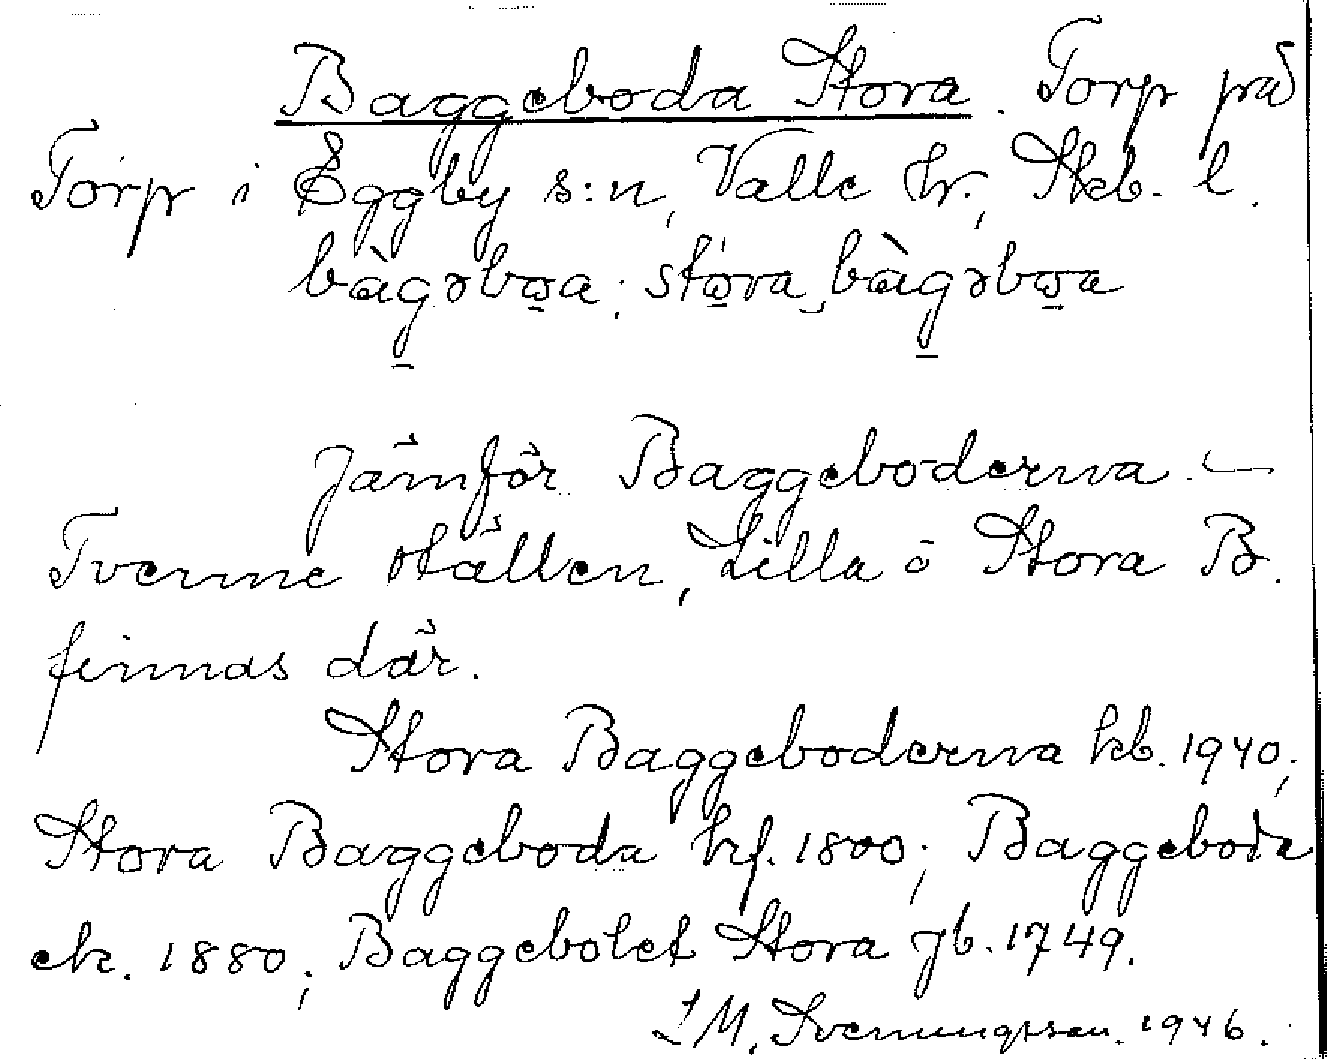 Baggeboda Stora. Torp på
Torp i Eggby s:n, Valle hr., Skb. l.
bàgəbo̤a; stó̤ra bàgəbo̤a
Jämför Baggeboderna. —
Tvenne ställen, Lilla o Stora B.
finnas där.
Stora Baggeboderna kb. 1940;
Stora Baggeboda hf. 1800; Baggeboda
ek. 1880; Baggebolet Stora jb. 1749.
I M. Svenungsson. 1946.